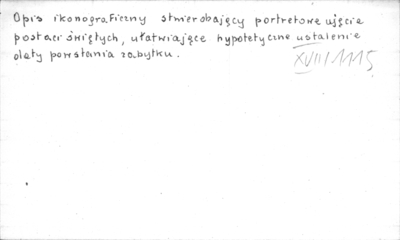 Opis ikonograficzny stwierdzający portretowe ujęcie
postaci świętych, ułatwiające hypotetyczne ustalenie
daty powstania zabytku.
XVIII/1115